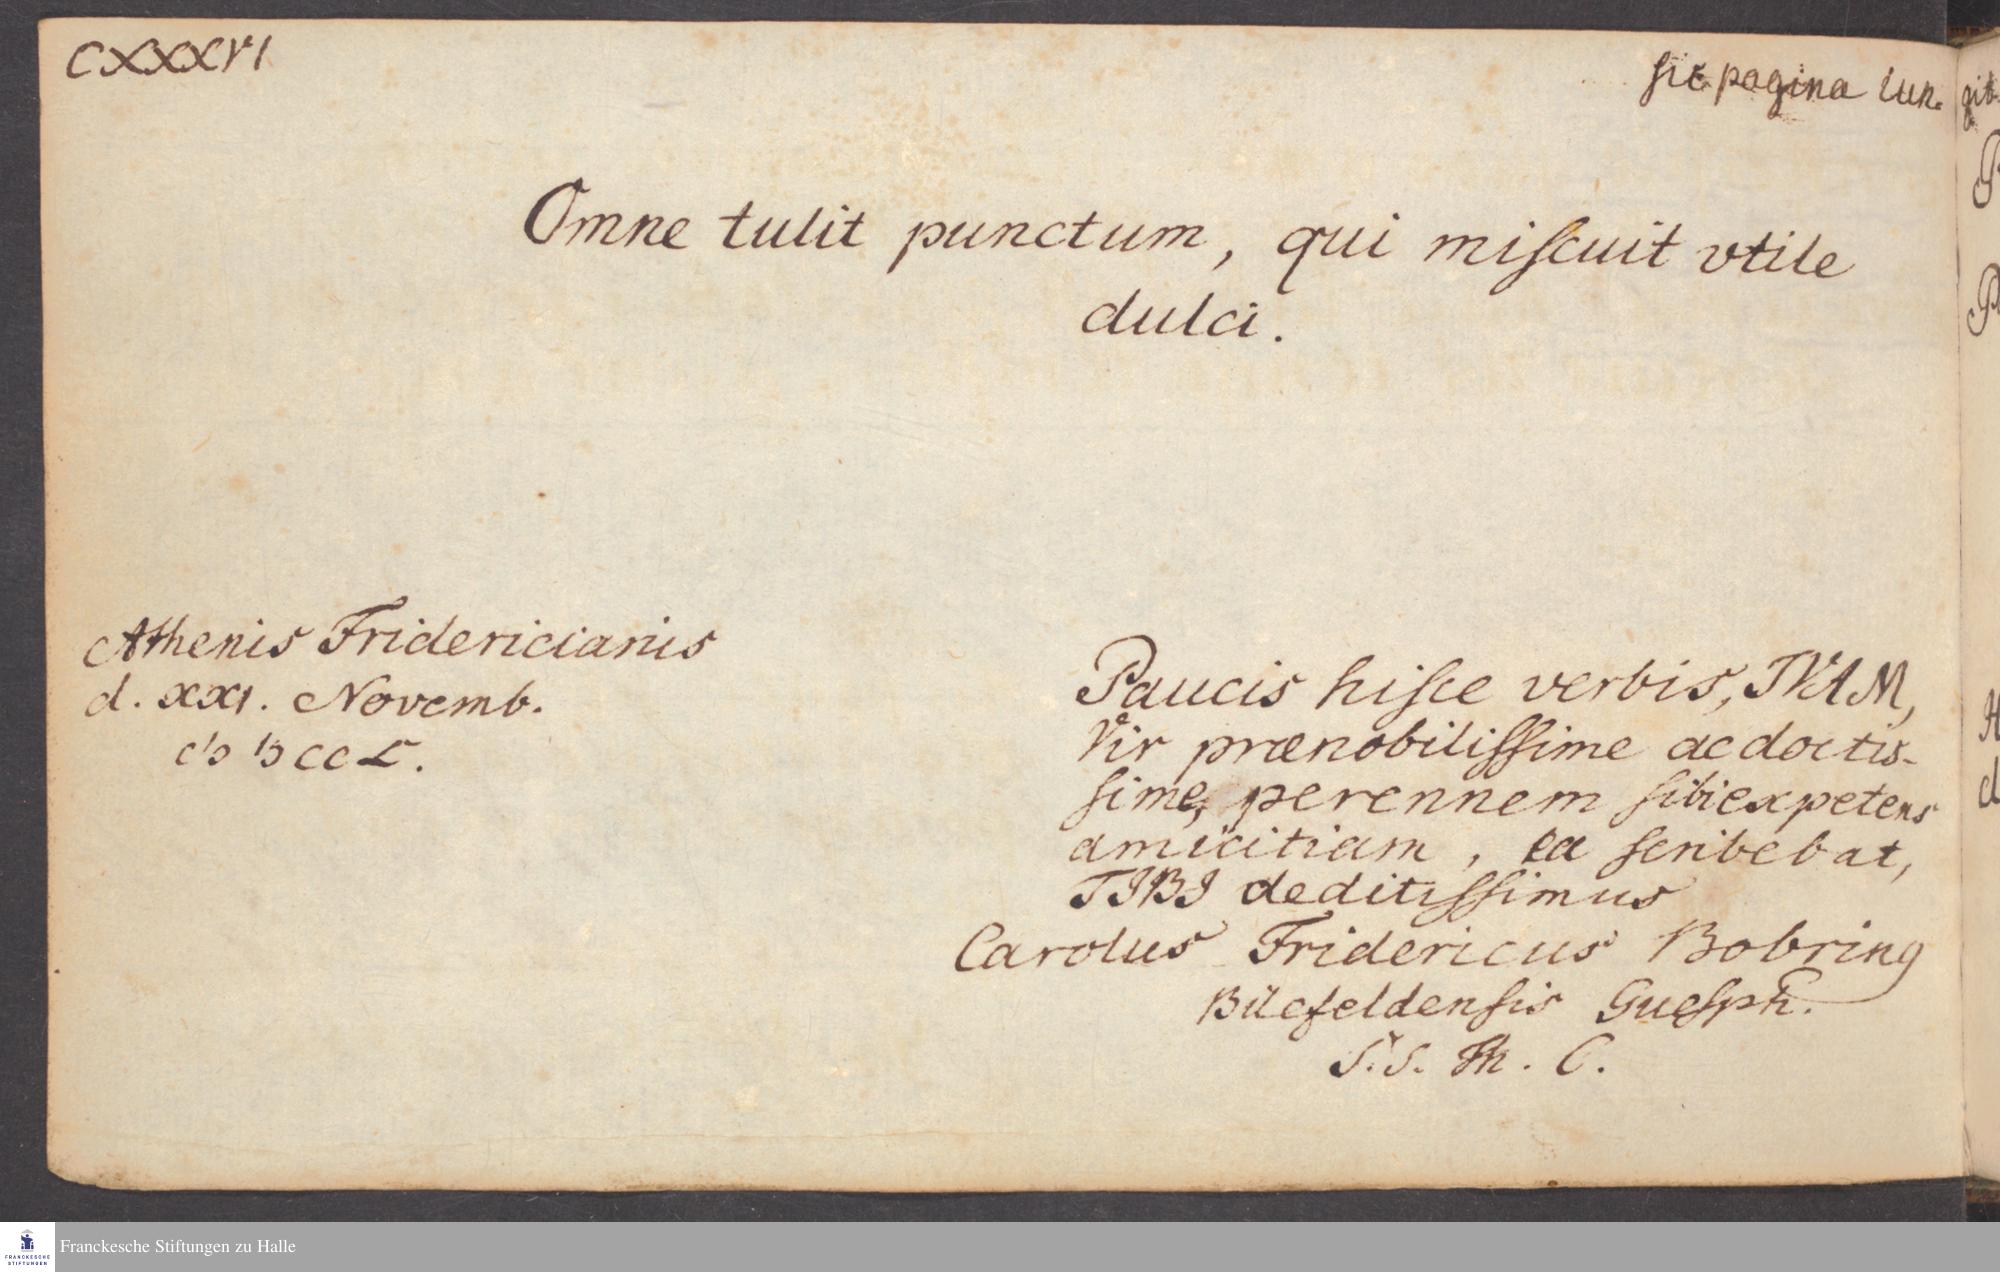 CXXXVI
sic pagina iun- git
Omne tulit punctum, qui miscuit vtile
dulci.
Athenis Fridericianis
d. XXI. Novemb.
CIƆ IƆ CC L.
Paucis hisce verbis, TVAM,
Vir prænobilissime ac doctis-
sime, perennem sibi expetens
amicitiam, ea scribebat,
TIBI deditissimus
Carolus Fridericus Bobring
Bilefeldensis Guesph.
S. S. Th. C.
FRANCKESCHE
STIFTUNGEN
Franckesche Stiftungen zu Halle